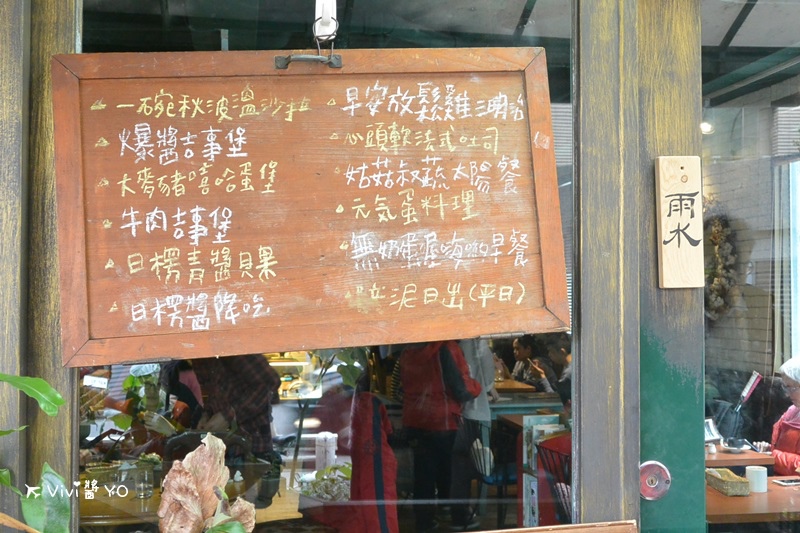 一碗秋波溫沙拉
爆醬吉事堡
大麥豬嘻哈蛋堡
牛肉吉事堡
日楞青醬貝果
日楞醬降吃
早安放鬆雞湯治
心頭軟法式吐司
姑菇叔蔬太陽餐
元気蛋料理
無奶蛋屋嗨喲早餐
泥日出(平日)
雨水
ViVi醬 YO